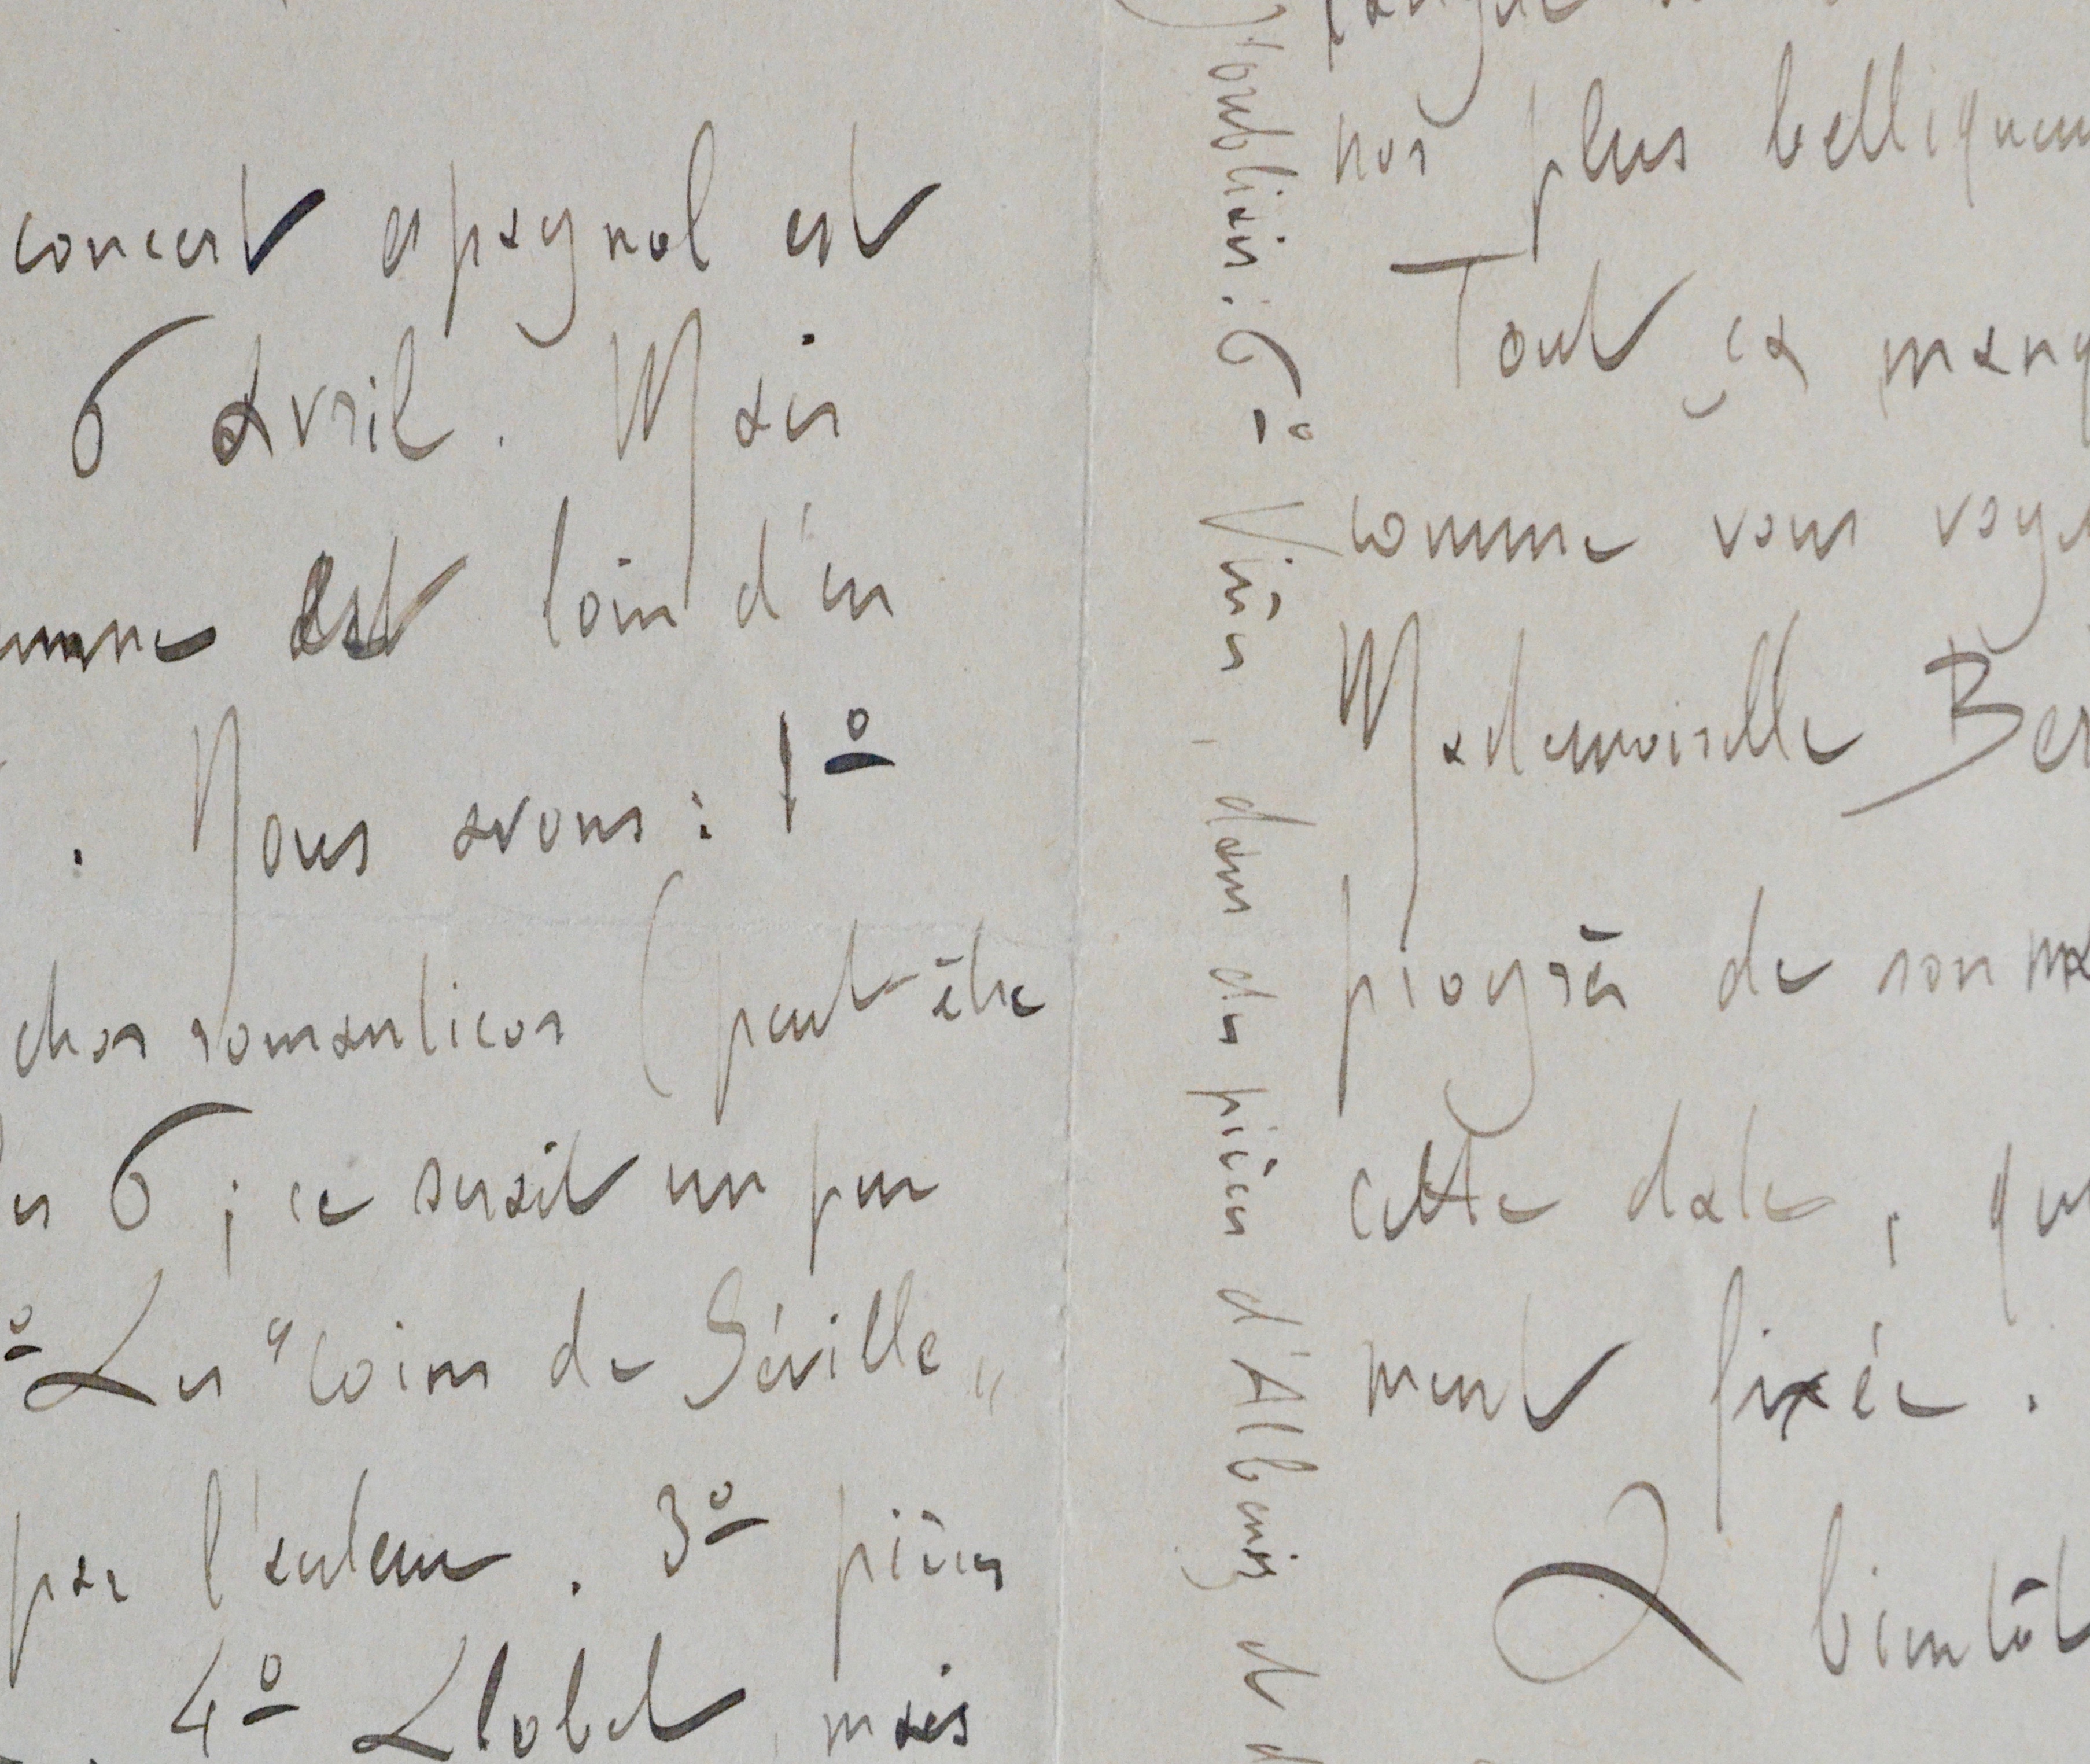 concert espagnol est
6 avril. Mais
est loin d'en
. Nous avons : 1º
romanticos (peut-être
6 ; ce serait un peu
º Les "Coins de Séville"
par l'auteur. 3º pièces
4º Llobet, mais
J'oubliais : 6º Viñes, dans des pièces d'Albeniz et d
nos plus belliqueu
Tout ça manq
comme vous voye
Mademoiselle Ber
progrès de son ma
cette date, qu
ment fixée.
A bientôt